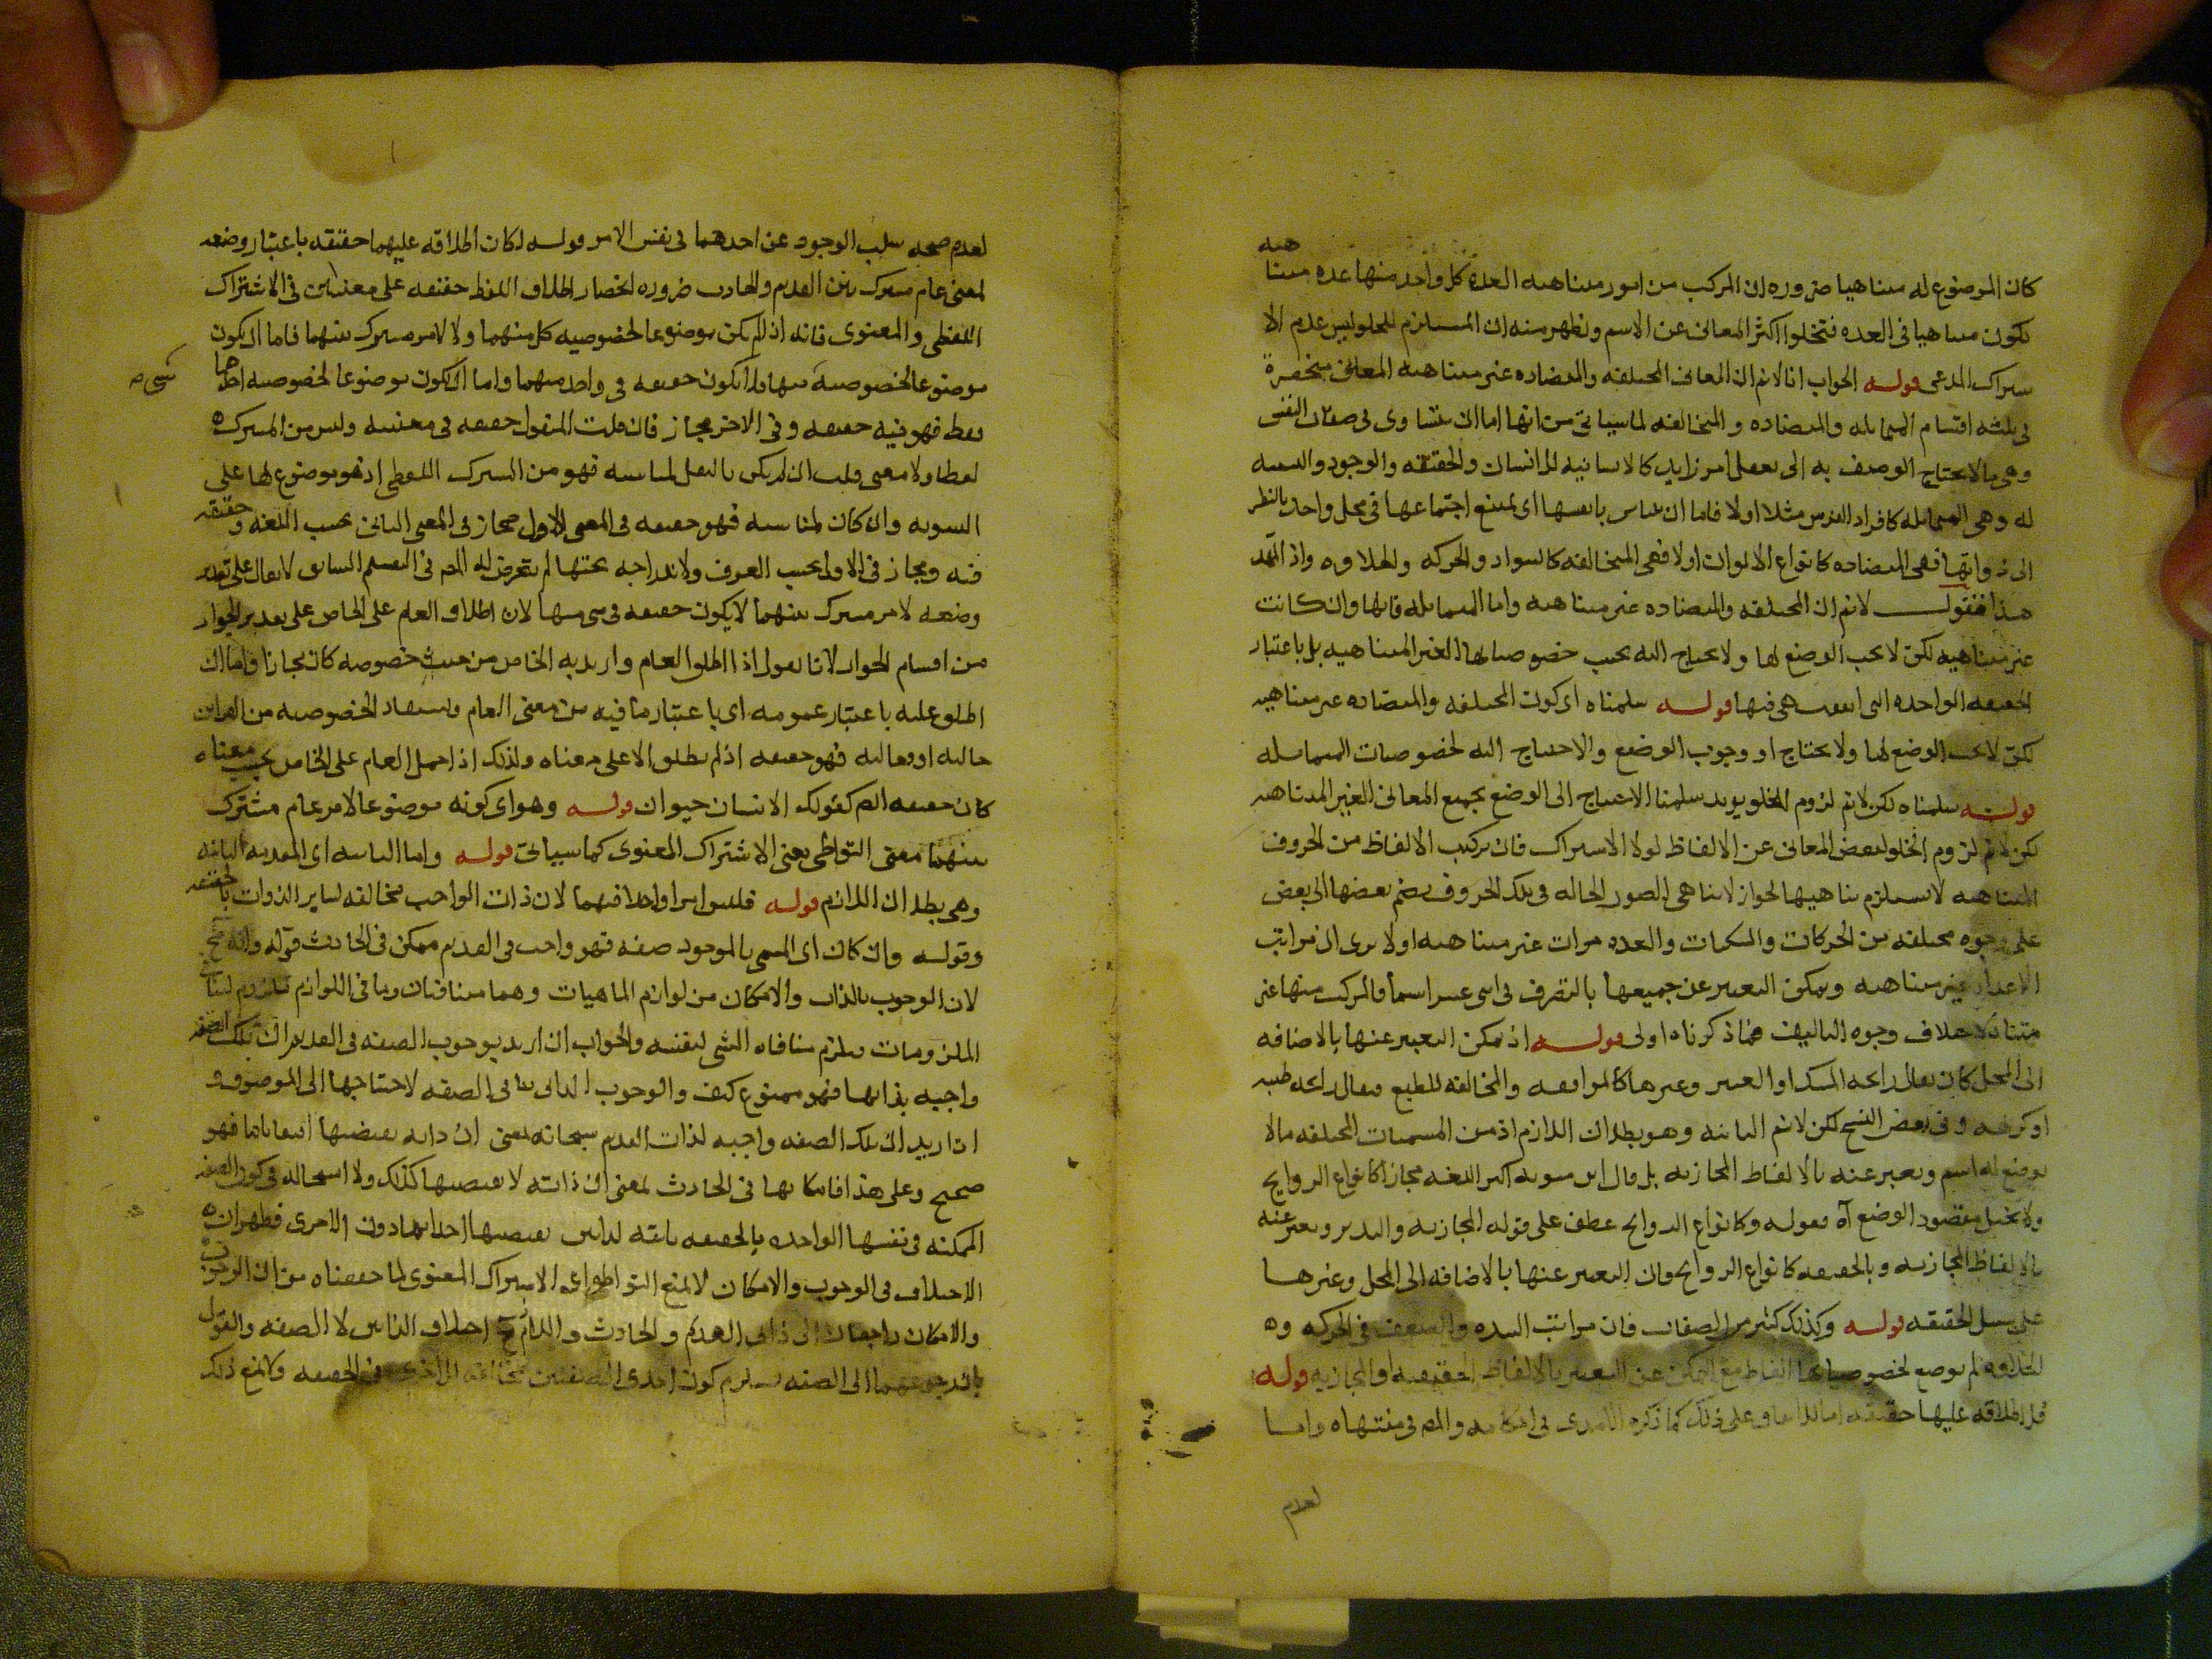 كان الموضوع له متناهيا ضروره ان المركب من امور متناهيه العدد كل واحد منها عده متناهيه
يكون متناهيا فى العده فتخلوا اكثر المعانى عن الاسم وتظهر منه ان المستلزم للخلو ليس عدم الا
شتراك المدعى قوله الجواب انا لا نم ان المعانى المختلفه والمتضاده غير متناهيه المعانى منحصرة
فى ثلثه اقسام المتماثله والمتضاده والمتخالفه لما سياتى من انها اما ان تتساوى فى صفات النفس
وهى ما لا يحتاج الوصف به الى تعقل امر زايد كالانسانيه للانسان والحقيقه والوجود والشييه
له وهى المتماثله كافراد الفرس مثلا اولا فاما ان تتنافى بانفسها اى يمتنع اجتماعها فى محل واحد بالنظر
الى ذواتها فهى المتضاده كانواع الالوان اولا فهى المتخالفه كالسواد والحركه والحلاوه واذا تمهد
هذا فنقول لا نم ان المختلفه والمتضاده غير متناهيه واما المتماثله فانها وان كانت
غير متناهيه لكن لا يجب الوضع لها ولا يحتاج اليه بحسب خصوصياتها الغير المتناهيه بل باعتبار
الحقيقه الواحده التى اتفقت هى فيها قوله سلمناه اى كون المختلفه والمتضاده غير متناهيه
لكن لا يجب الوضع لها ولا يحتاج او وجوب الوضع والاحتياج اليه لخصوصيات المتماثله
قوله سلمناه لكن لا نم لزوم الخلو يريد سلمنا الاحتياج الى الوضع بجميع المعانى الغير المتناهيه
لكن لا نم لزوم الخلو لبعض المعانى عن الالفاظ لولا الاشتراك فان تركيب الالفاظ من الحروف
المتناهيه لا يستلزم تناهيها لجواز لاتناهى الصور الحاله فى تلك الحروف بضم بعضها الى بعض
على وجوه مختلفه من الحركات والسكنات والعدد مرات غير متناهيه اولا يرى ان مراتب
الاعداد غير متناهيه ويمكن التعبير عن جميعها بالتصرف فى اثنى عشر اسما فالمركب منها غير
متناه لاختلاف وجوه التاليف فما ذكرناه اولى قوله اذ يمكن التعبير عنها بالاضافه
الى المحل كان يقال رايحه المسك او العنبر وغيرها كالموافقه والمخالفه للطبع فيقال رايحه طيبه
او كريهه وفى بعض النسخ لكن لا نم الثانيه وهو بطلان اللازم اذ من المسميات المختلفه مالا
يوضع له اسم ويعبر عنه بالالفاظ المجازيه بل قال ابن متويه اكثر اللغه مجاز كانواع الروايح
ولا يختل مقصود الوضع آه فقوله وكانواع الروايح عطف على قوله المجازيه والتقدير ويعبر عنه
بالالفاظ المجازيه وبالحقيقه كانواع الروايح وان التعبير عنها بالاضافه الى المحل وغيرها
على سبيل الحقيقه قوله وكذلك كثير من الصفات فان مراتب الشده والضعف فى الحركه و
الحلاوه لم يوضع لخصوصياتها الفاظ مع التمكن عن التعبير بالالفاظ الحقيقيه او المجازيه قوله
قل اطلاقه عليها حقيقه على ذلك كما ذكره الآمدى فى احكامه والمص فى منتهاه واما
لعدم
لعدم صحه سلب الوجود عن احدهما فى نفس الامر قوله لكان اطلاقه عليهما حقيقه باعتبار وضعه
لمعنى عام مشترك بين القديم والحادث ضروره انحصار اطلاق اللفظ حقيقه على معنيين فى الاشتراك
اللفظى والمعنوى فانه اذا لم يكن موضوعا لخصوصيه كل منهما ولا لامر مشترك بينهما فاما ان يكون
موضوعا لخصوصيه منهما ولا يكون حقيقه فى واحد منهما واما ان يكون موضوعا لخصوصيه احدهما
شىء ص
فقط فهو فيه حقيقه وفى الاخر مجاز فان قلت المنقول حقيقه فى معنييه وليس من المشترك
لفظا ولا معنى قلت ان لم يكن بالنقل لمناسبه فهو من المشترك اللفظى اذ هو موضوع لها على
السويه وان كان لمناسبه فهو حقيقه فى المعنى الاول مجاز فى المعنى الثانى بحسب اللغه وحقيقه
فيه ومجاز فى الاول بحسب العرف ولاندراجه تحتها لم يتعرض له المص فى التقسيم السابق لا يقال على تقدير
وضعه لامر مشترك بينهما لا يكون حقيقه فى شى منهما لان اطلاق العام على الخاص على تقدير الجواز
من اقسام المجاز لانا نقول اذا اطلق العام واريد به الخاص من حيث خصوصه كان مجازا واما ان
اطلق عليه باعتبار عمومه اى باعتبار ما فيه من معنى العام ويستفاد الخصوصيه من القراين
حاليه او مقاليه فهو حقيقه اذ لم يطلق الا على معناه ولذلك اذا حمل العام على الخاص بحسب معناه
كان حقيقه الم كقولك الانسان حيوان قوله وهو اى كونه موضوعا لامر عام مشترك
بينهما معنى التواطى يعنى الاشتراك المعنوى كما سياتى قوله واما الثانيه اى المقدمه الثانيه
وهى بطلان اللازم قوله فليس امرا واحدا فيهما لان ذات الواجب مخالفه لساير الذوات بالحقيقه
وقوله وان كان اى المسمى بالموجود صفه فهو واجب فى القديم ممكن فى الحادث قوله وانه
لان الوجوب بالذات والامكان من لوازم الماهيات وهما متنافيان وتنافى اللوازم يلزم تنافى
الملزومات فيلزم منافاه الشى لنفسه والجواب ان اريد بوجوب الصفه فى القديم ان تلك الصفه
واجبه بذاتها فهو ممنوع كيف والوجوب الذاتى ينافى الصفه لاحتياجها الى الموصوف و
ان اريد ان تلك الصفه واجبه لذات القديم سبحانه بمعنى ان ذاته تقتضيها اقتضاء تاما فهو
صحيح وعلى هذا فامكانها فى الحادث بمعنى ان ذاته لا تقتضيها كذلك ولا استحاله فى كون الصفه
الممكنه فى نفسها الواحده بالحقيقه ثابته لذاتين تقتضيها احداهما دون الاخرى فظهر ان
الاختلاف فى الوجوب والامكان لا يمنع التواطؤ اى الاشتراك المعنوى لما حققناه من ان الوجوب
والامكان راجعان الى ذاتى القديم والحادث واللازم ح اختلاف الذاتين لا الصفه والقول
بان رجوعهما الى الصفه يستلزم كون احدى الصفتين مخالفه للاخرى فى الحقيقه ويمنع ذلك